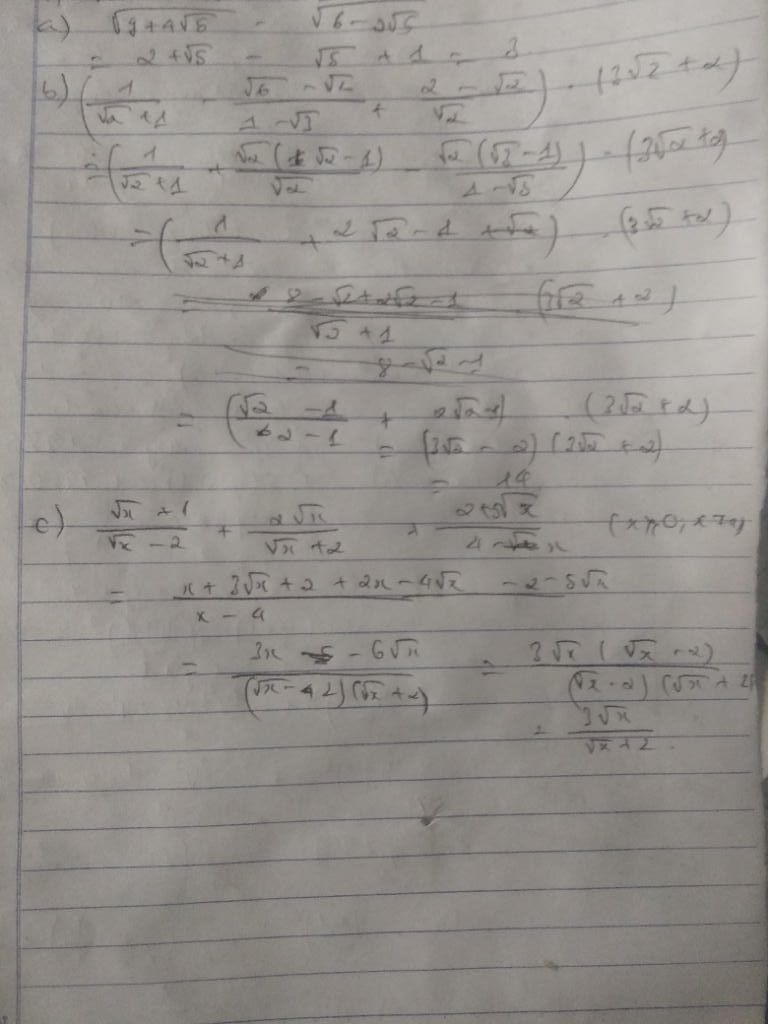 a) √(9+4√5) - √(6-2√5)
= 2+√5 - √5 + 1 = 3
b) (1/(√2+1) - (√6-√2)/(1-√3) + (2-√2)/√2) . (3√2+2)
= (1/(√2+1) + √2(√2-1)/√2 - √2(√3-1)/(1-√3)) . (3√2+2)
= (1/(√2+1) + 2√2-1) . (3√2+2)
= (√2-1)/(2-1) + 2√2-1) . (3√2+2)
= (3√2-2)(3√2+2)
= 14
c) (√x+1)/(√x-2) + 2√x/(√x+2) + (2+5√x)/(4-x)
= (x+3√x+2+2x-4√x-2-5√x)/(x-4)
= (3x-6√x)/((√x-2)(√x+2)) = 3√x(√x-2)/((√x-2)(√x+2))
= 3√x/(√x+2).